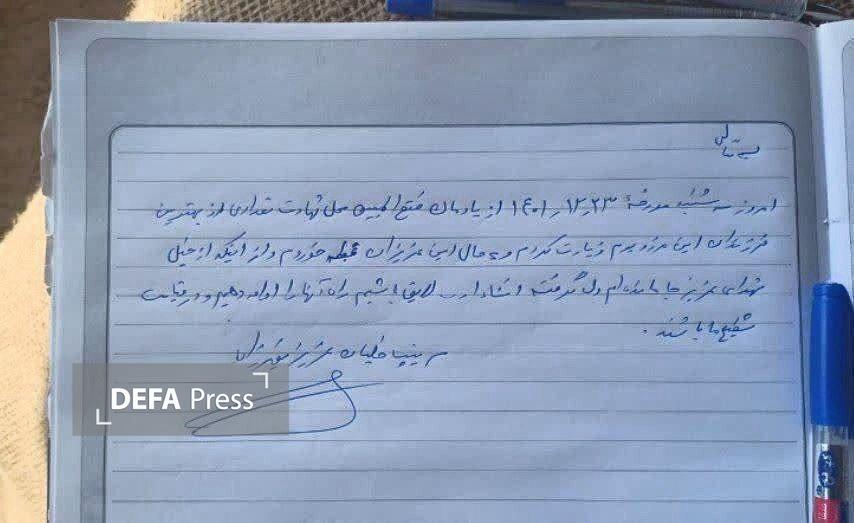 بسمه تعالی
امروز سه شنبه مورخهٔ ۱۴۰۱/۱۲/۲۳ از یادمان فتح المبین محل شهادت تعدادی از بهترین
فرزندان این مرز و بوم زیارت کردم و به حال این عزیزان غبطه خوردم و از اینکه از خیل
شهدای عزیز جا مانده‌ام دلم گرفته انشاءا... لایق باشیم راه آنها را ادامه دهیم و در قیامت
شفیع ما باشند.
سرتیپ خلبان عزیز نصیرزاده
DEFA Press